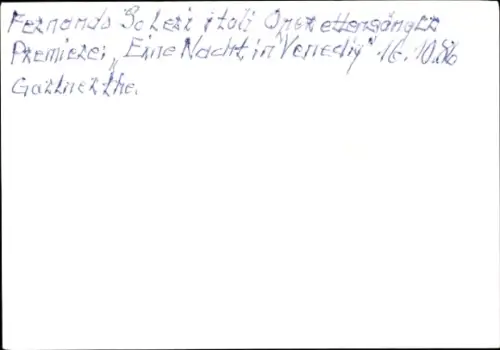 Fernando Scheri itali Operettensänger
Premiere: „Eine Nacht in Venedig" 16.10.86
Gärtnerthe.